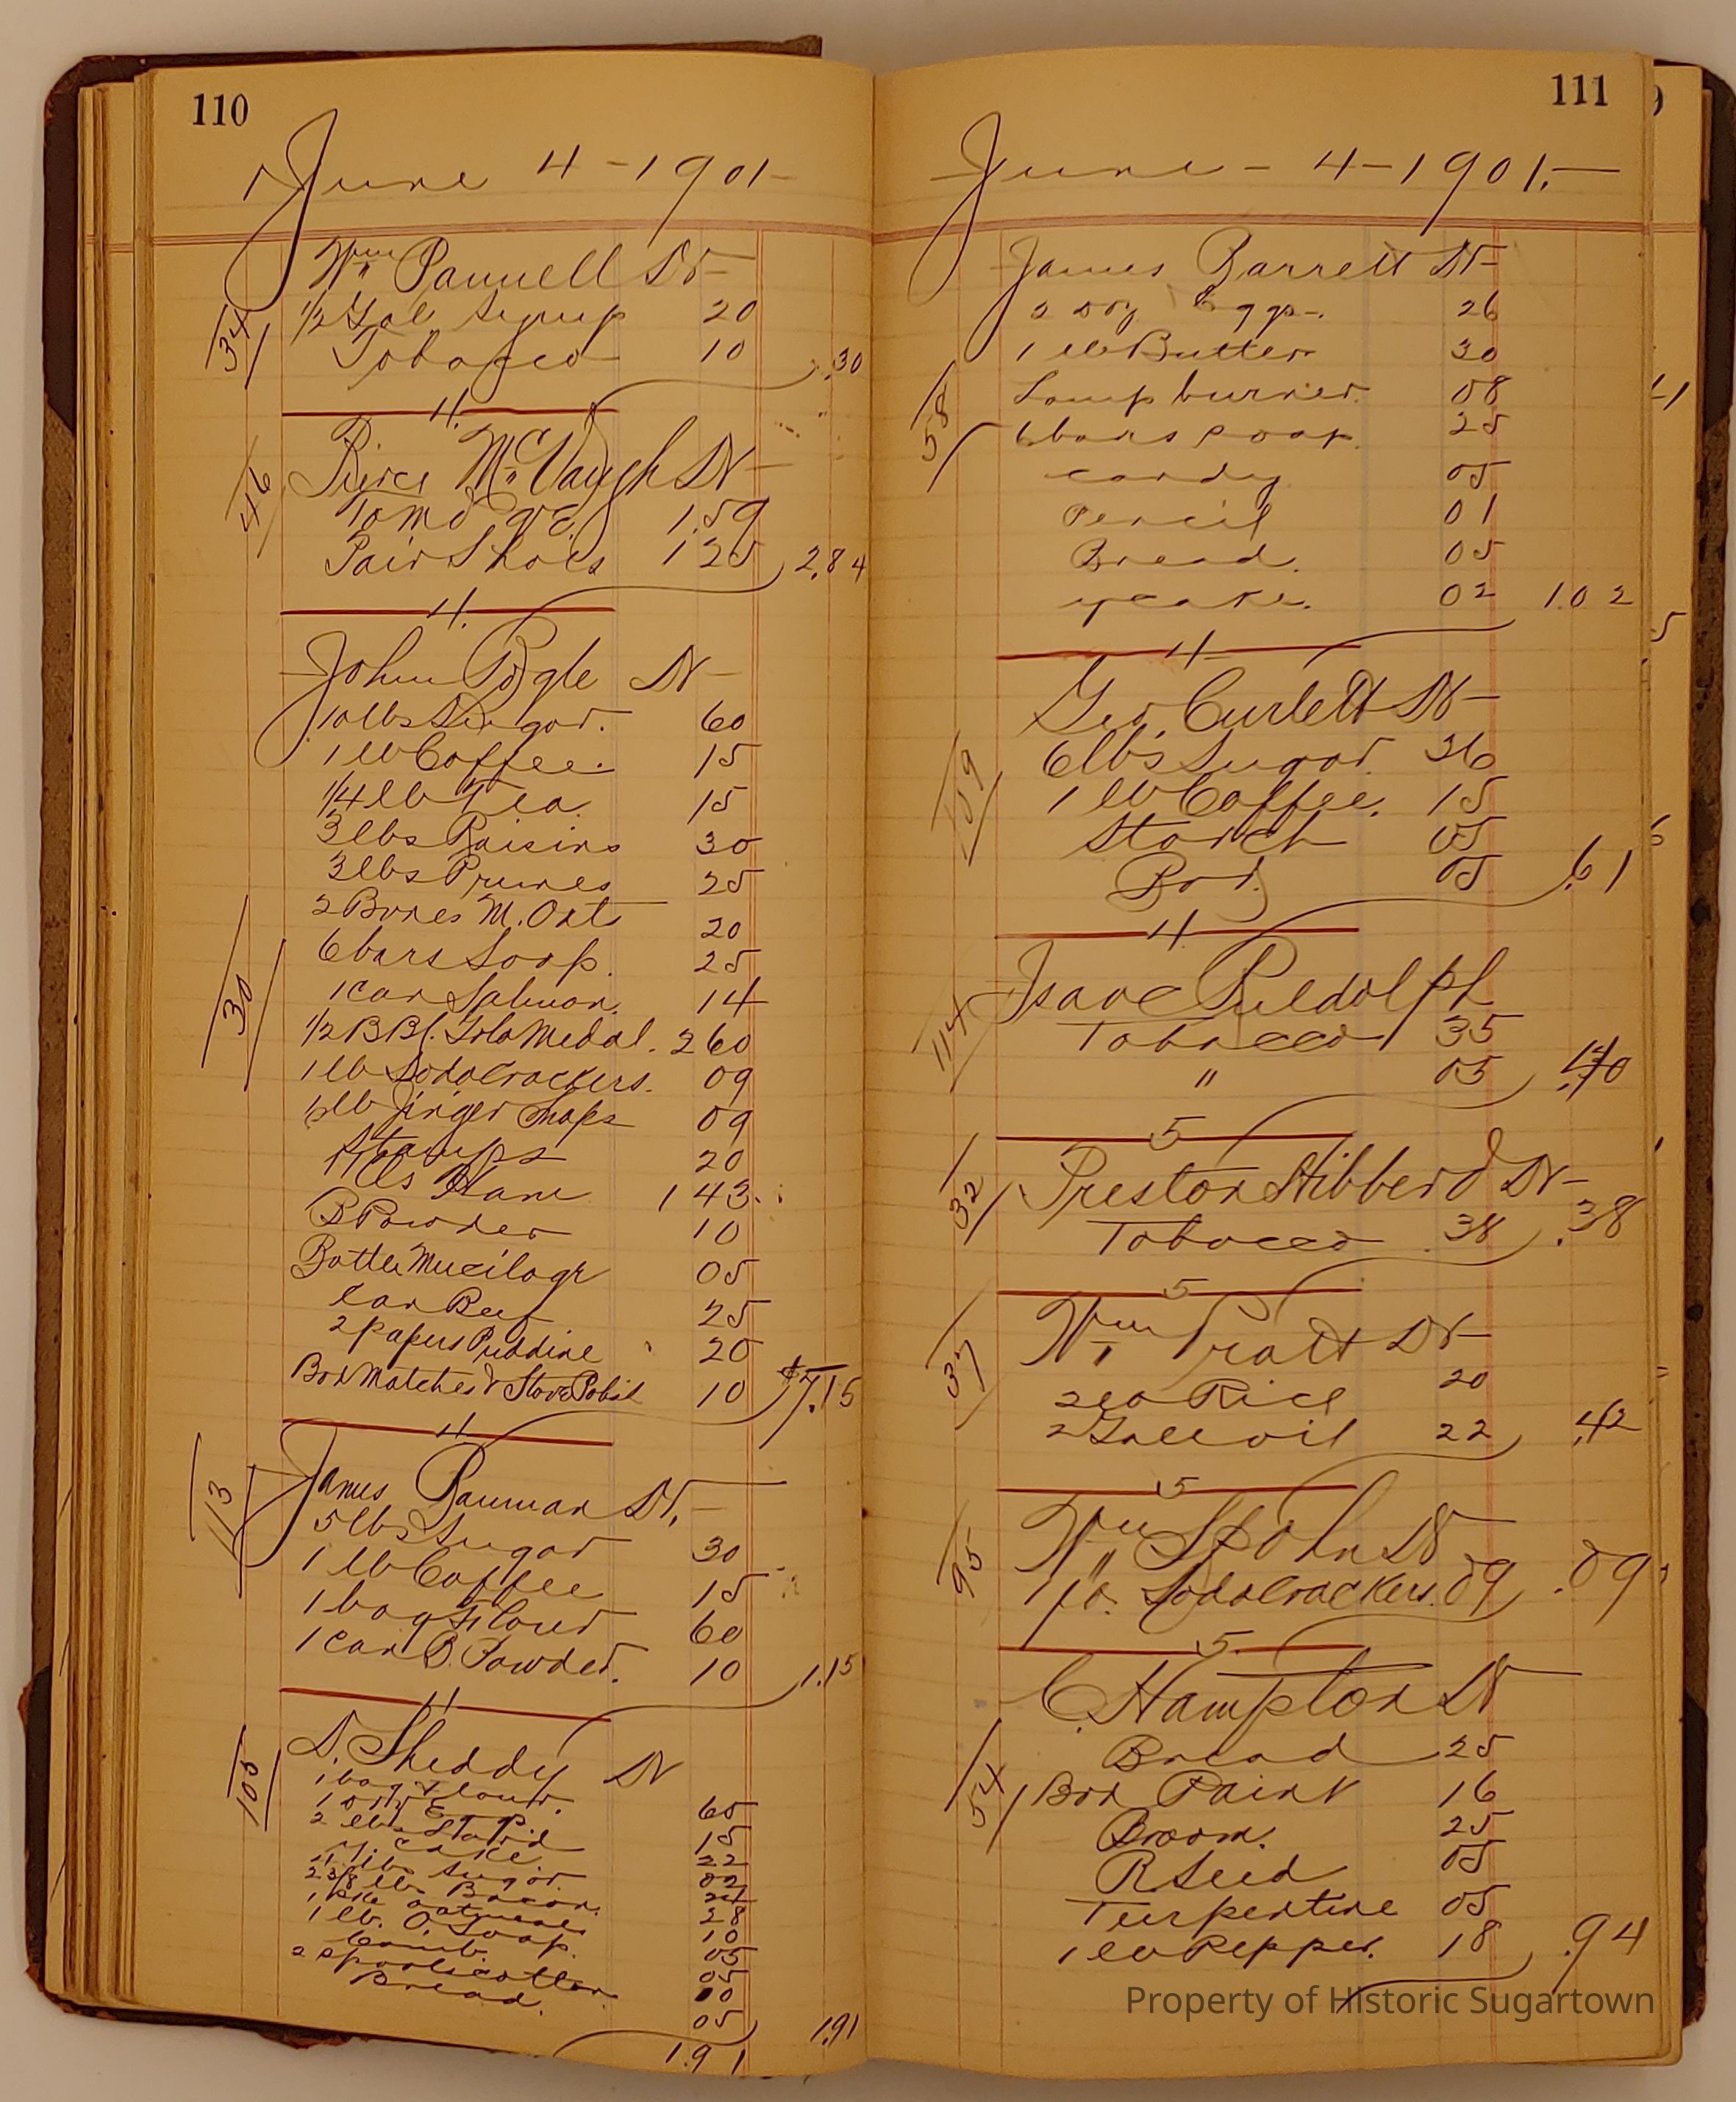 110
June 4 - 1901 -
Wm Pannell Dr -
34
1/2 Gal Syrup 20
Tobacco 10 .30
4.
46
Pierce McVaugh Dr -
1.59
Pair Shoes 1 25 2.84
4.
John Pogle Dr -
10 lbs Sugar. 60
1 lb Coffee. 15
1/4 lb Tea. 15
3 lbs Raisins 30
3 lbs Prunes 25
2 Boxes M. Oats 20
30
6 bars Soap. 25
1 Can Salmon. 14
1/2 BBl. Gold Medal. 2 60
1 lb Soda Crackers. 09
1 lb Jinger Snaps 09
Stamps 20
lbs Ham 1 43
B Powder 10
Bottle Mucilage 05
Can Beef 25
2 papers Puddine 20
Box Matches & Stove Polish 10 $7.15
4
113
James Bauman Dr. -
5 lbs Sugar 30
1 lb Coffee 15
1 bag Flour 60
1 Can B. Powder. 10 1.15
4
105
D. Sheddy Dr
1 bag Flour. 65
1 doz Eggs. 15
2 lbs Lard 22
Y. Cake 02
lbs Sugar. 24
2 3/8 lbs Bacon. 28
1 pk Oatmeal 10
1 lb. O. Soap. 05
Comb. 05
2 Spools Cotton 10
Bread. 05 1.91
1.91
111
June - 4 - 1901. -
James Barrett Dr -
2 Doz Eggs -. 26
1 lb Butter 30
58
Lamp burner. 08
6 bars Soap. 25
Candy 05
Pencil 01
Bread. 05
y Cake. 02 1.02
4
Geo. Curlett Dr -
109
6 lbs Sugar. 36
1 lb Coffee. 15
Starch 05
05 .61
4
114
Isaac Puldolph
Tobacco 35
" 05 .40
5
32
Preston Hibberd Dr -
Tobacco 38 .38
5
37
Wm Pratt Dr -
2 lb Rice 20
2 Gall oil 22 .42
5
95
Wm Spohn Dr
1 lb. Soda Crackers. 09 .09
5.
C. Hampton Dr
54
Bread 25
Box Paint 16
Broom. 25
R Seed 05
Turpentine 05
1 lb Pepper. 18 .94
Property of Historic Sugartown